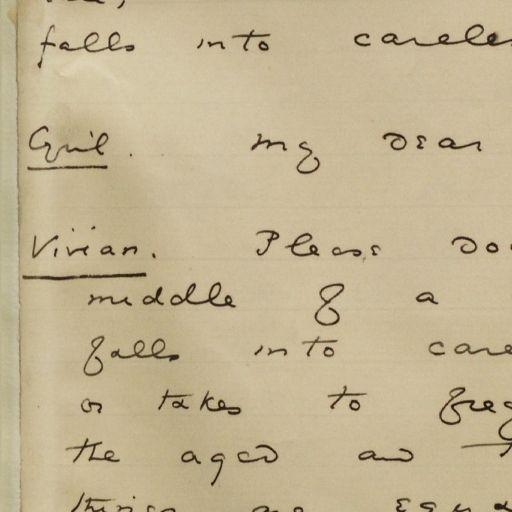 falls into careles
Cyril. My dear
Vivian. Please do
middle of a
falls into care
or takes to freq
the aged and
things are equa